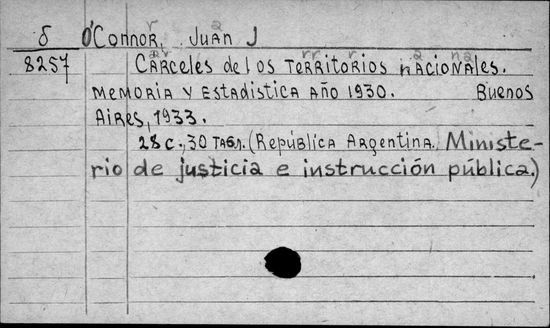 б O'Connor, Juan J
8257 Cárceles de los territorios nacionales.
Memoria y estadistica año 1930. Buenos
Aires, 1933.
28 с., 30 табл. (República Argentina. Ministe-
rio de justicia e instrucción pública.)